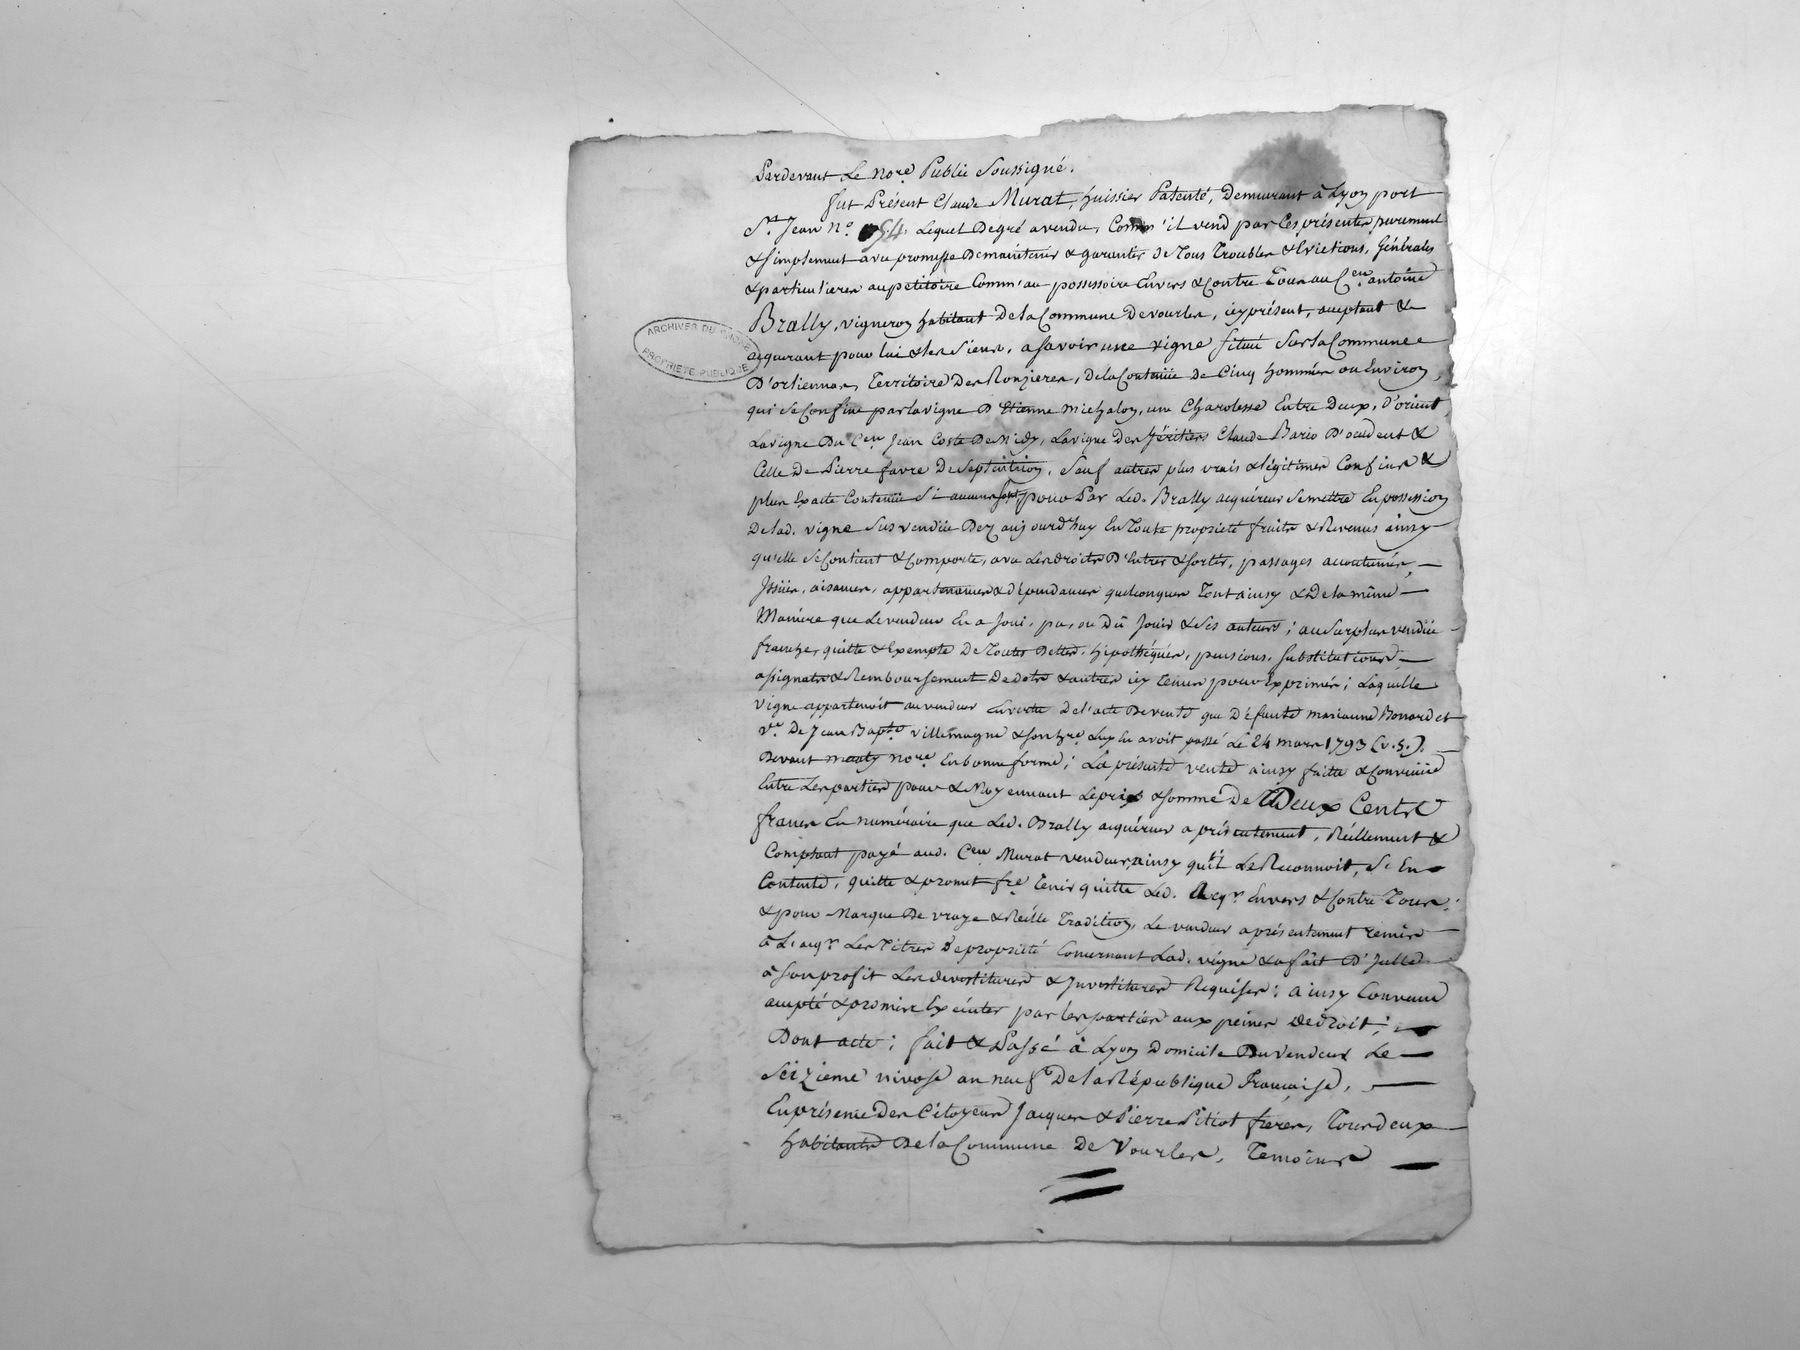 Pardevant Le no.re Public Soussigné.
fut Présent Claude Murat, huissier Patenté, Demeurant à Lyon port
St. Jean n.o 54. Lequel Degré a vendu, Comm'il vend par Ces présentes purement
& simplement avec promesse De maintenir & garentir de Tous Troubles & Evictions, Générales
& particulieres au petitoire Comm'au possessoire Envers & Contre Tous au C.en antoine
Brally, vigneron habitant De la Commune De vourles, icy présent, acceptant &
acquerant pour lui & les Siens, a savoir une vigne située Sur la Commune
D'orlienas, Territoire Des Ronzieres, De la Contenüe De Cinq hommées ou Environ,
qui se Confine par la vigne D'Etienne michalon, une Charolesse Entre Deux, d'orient,
La vigne Du C.en Jean Coste De Midy, La vigne Des héritiers Claude Bario D'occident &
Celle De Pierre favre De Septentrion, Sauf autres plus vrais & légitimes Confins &
plus Exacte Contenüe Si aucuns sont, pour Par Led. Brally acquéreur Se mettre En possession
De lad. vigne Sus vendüe Dez aujourd'huy En Toute propriété fruits & Revenus ainsy
qu'elle Se Contient & Comporte, avec Les droits D'Entrer & sortir, passages accoutumés,
Issües, aisances, appartenances & dépendances quelconques Tout ainsy & De la même
Manière que Le vendeur En a Joui, pu, ou Dû Jouir & Ses auteurs; au Surplus vendüe
franche, quitte & Exempte De Toutes Dettes, hipothéques, pensions, Substitutions,
assignats & Remboursement De dots & autres icy Tenus pour Exprimés; Laquelle
vigne appartenoit au vendeur En vertu De l'acte De vente que Défunte marianne Bonardet
v.e De Jean Bapt.e villemagne & son h.re Luy En avoit passé Le 24 mars 1793 (v.s.).
Devant no.re En bonne forme; La présente vente ainsy faitte & Convenüe
Entre Les parties pour & Moyennant Le prix & Somme De Deux Cents
francs En numéraire que Led. Brally acquéreur a présentement, Réellement &
Comptant payé aud. C.en Murat vendeur, ainsy qu'il Le Reconnoit, S'En
Contente, quitte & promet f.re Tenir quitte Led. Acq.r Envers & Contre Tous;
& pour Marque De vraye & Réelle Tradition, Le vendeur a présentement remis
à L'acq.r Les Titres De propriété Concernant Lad. vigne & a fait D'Icelle
à Son profit Les devestitures & Investitures Requises; ainsy Convenu
accepté & promis Exécuter par les parties aux peines De droit;
Dont acte; fait & Passé à Lyon Domicile Du vendeur Le
Seizieme nivose an neuf De la République Française,
En présence Des Citoyens Jacques & Pierre Pitiot freres, Tous deux
habitants De la Commune De Vourles, Temoins
ARCHIVES DU RHÔNE
PROPRIÉTÉ PUBLIQUE